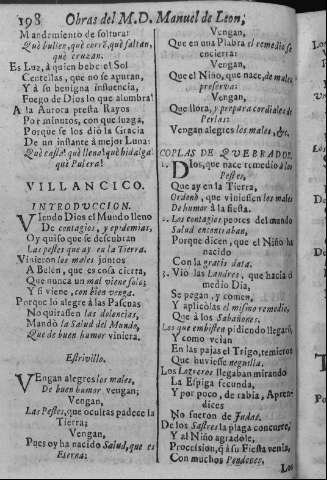 198 Obras del M. D. Manuel de Leon,
Mandamiento de soltura:
Què bullen, què corrẽ, què saltan,
què cruzan.
Es Luz, à quien bebe el Sol
Centellas, que no se apuran,
Y à su benigna influencia,
Fuego de Dios lo que alumbra!
A la Aurora presta Rayos
Por minutos, con que luzga,
Porque se los diò la Gracia
De un instante à mejor Luna:
Què casta! què llena! què hidalga
què Pulcra!
VILLANCICO.
INTRODUCCION.
VIendo Dios el Mundo lleno
De contagios, y epidemias,
Oy quiso que se descubran
Las pestes que ay en la Tierra.
Vinieron los males juntos
A Belèn, que es cosa cierta,
Que nunca un mal viene solo;
Y si viene, con bien venga.
Porque lo alegre à las Pascuas
No quitassen las dolencias,
Mandò la Salud del Mundo,
Que de buen humor viniera.
Estrivillo.
VEngan alegres los males,
De buen humor vengan;
Vengan,
Las Pestes, que ocultas padece la
Tierra;
Vengan,
Pues oy ha nacido Salud, que es
Eterna;
Vengan,
Que en una Piabra el remedio se
encierra:
Vengan,
Que el Niño, que nace, de males
preserva:
Vengan,
Que llora, y prepara cordiales de
Perlas:
Vengan alegres los males, &c.
COPLAS DE QUEBRADOS.
1. DIos, que nace remedio à las
Pestes,
Que ay en la Tierra,
Ordenò, que viniessen los males
De humor à la fiesta.
2. Los contagios peores del mundo
Salud encontraban,
Porque dicen, que el Niño ha
nacido
Con la gratis data.
3. Viò las Landres, que hacia el
medio Dia,
Se pegan, y comen,
Y aplicòlas el mismo remedio,
Que à los Sabañones.
Los que embisten pidiendo llegarõ,
Y como veian
En las pajas el Trigo, temieron
Que huviesse neguilla.
Los Lazeros llegaban mirando
La Espiga fecunda,
Y por poco, de rabia, Aprendices
No fueron de Judas.
De los Sastres la plaga concurre,
Y al Niño agradòle,
Procession, q̃ à su Fiesta venia,
Con muchos Pendones.
Los